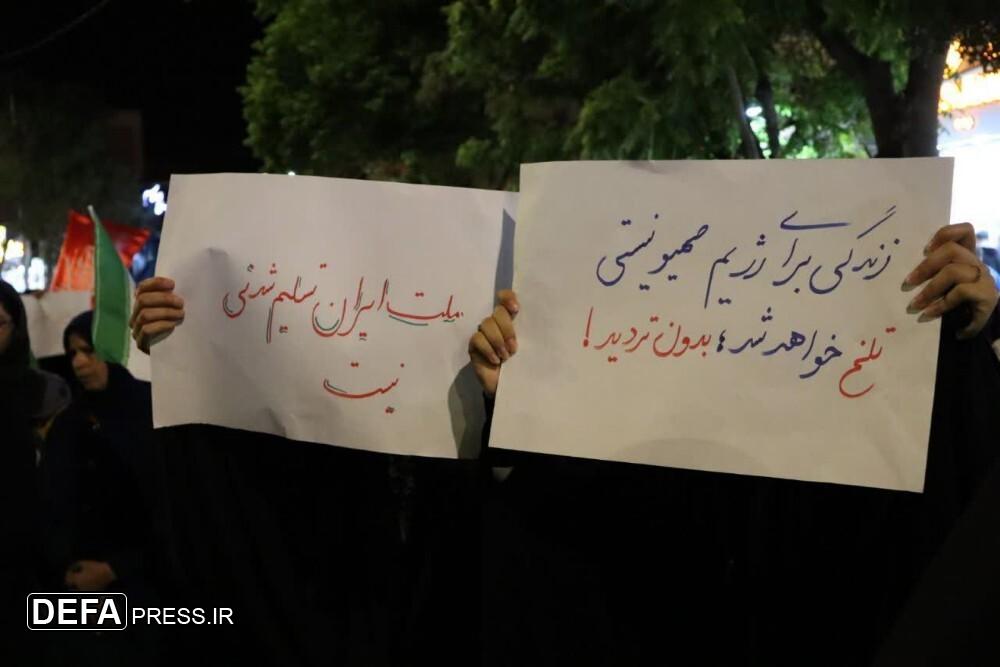 زندگی برای رژیم صهیونیستی
تلخ خواهد شد؛ بدون تردید!
ملت ایران تسلیم شدنی
نیست
DEFAPRESS.IR